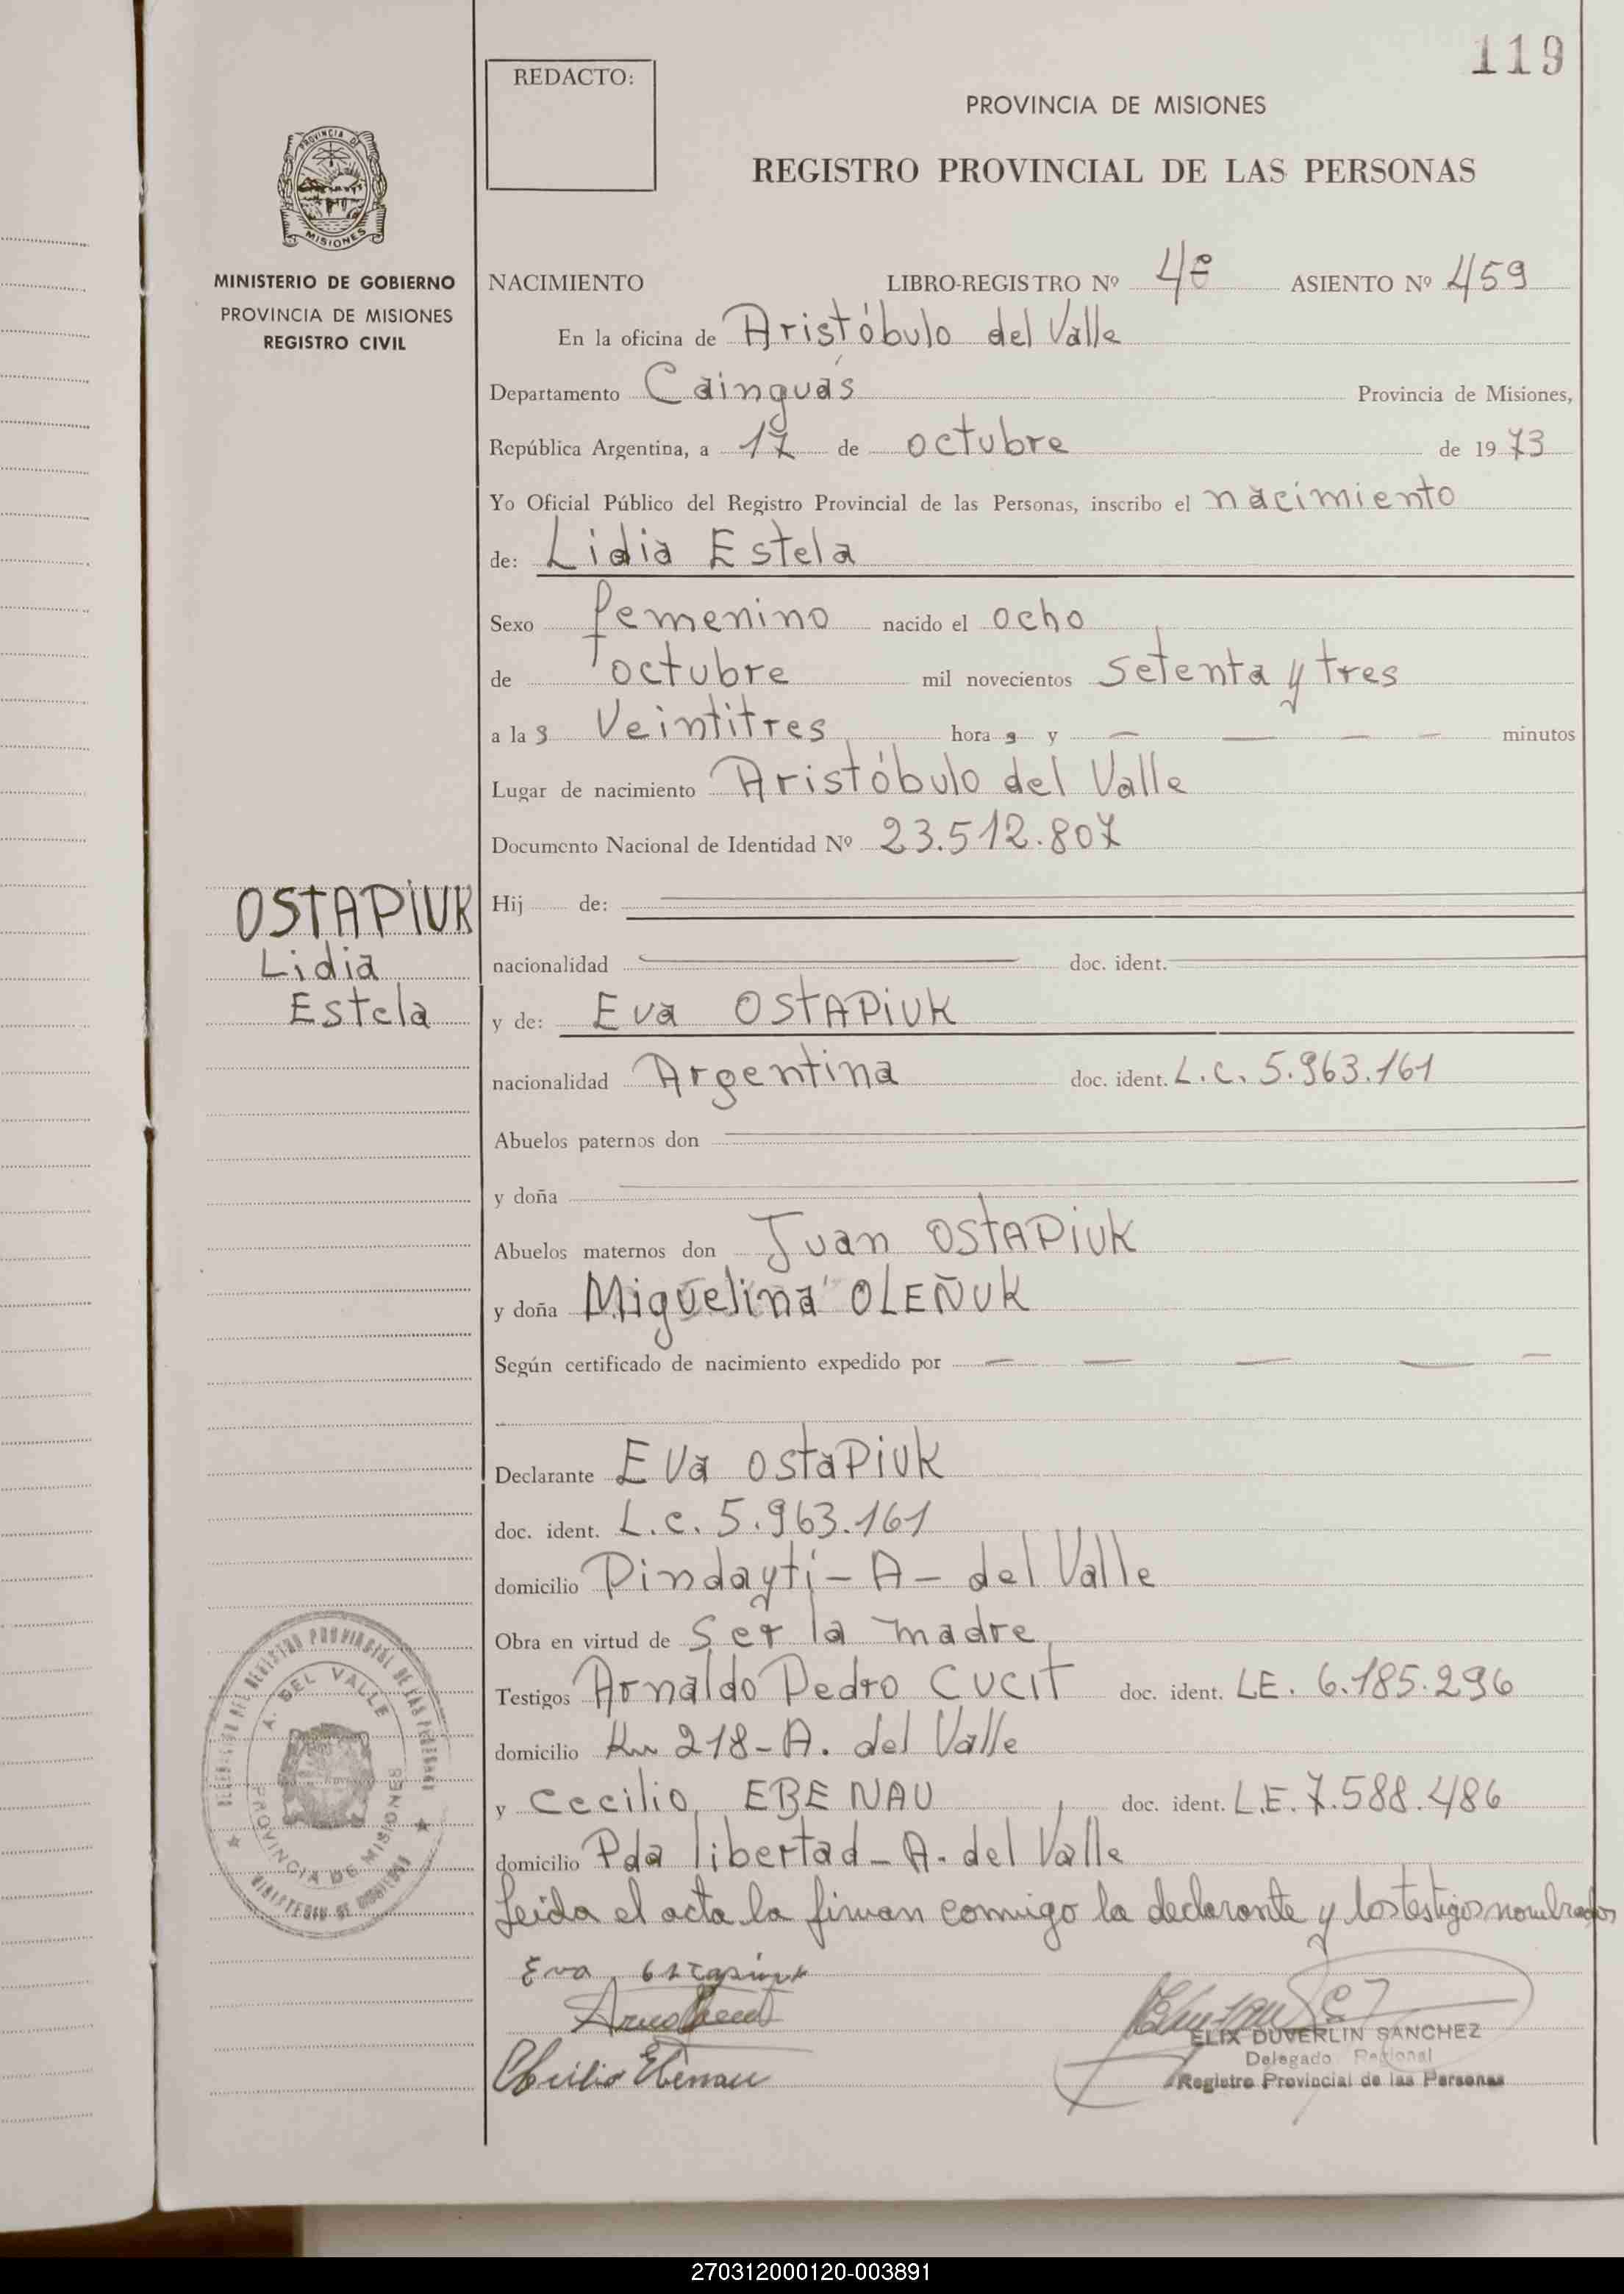 119
REDACTO:
PROVINCIA DE MISIONES
REGISTRO PROVINCIAL DE LAS PERSONAS
PROVINCIA DE
MISIONES
MINISTERIO DE GOBIERNO
PROVINCIA DE MISIONES
REGISTRO CIVIL
NACIMIENTO LIBRO-REGISTRO Nº 4º ASIENTO Nº 459
En la oficina de Aristóbulo del Valle
Departamento Cainguás Provincia de Misiones,
República Argentina, a 17 de octubre de 1973
Yo Oficial Público del Registro Provincial de las Personas, inscribo el nacimiento
de: Lidia Estela
Sexo femenino nacido el ocho
de octubre mil novecientos setenta y tres
a la s Veintitres hora s y — — — — minutos
Lugar de nacimiento Aristóbulo del Valle
Documento Nacional de Identidad Nº 23.512.807
OSTAPIUK
Lidia
Estela
Hij de:
nacionalidad doc. ident.
y de: Eva OSTAPIUK
nacionalidad Argentina doc. ident. L.C. 5.963.161
Abuelos paternos don
y doña
Abuelos maternos don Juan OSTAPIUK
y doña Miguelina OLEÑUK
Según certificado de nacimiento expedido por — — — — —
Declarante Eva OSTAPIUK
doc. ident. L.C. 5.963.161
domicilio Pindaytí - A - del Valle
Obra en virtud de ser la madre
Testigos Arnaldo Pedro CUCIT doc. ident. LE. 6.185.296
domicilio Km 218 - A. del Valle
y Cecilio EBENAU doc. ident. L.E. 7.588.486
domicilio Pda libertad - A. del Valle
Leida el acta la firman conmigo la declarante y los testigos nombrados
A. DEL VALLE
PROVINCIA DE MISIONES
MINISTERIO DE GOBIERNO
Eva Ostapiuk
Cecilio Ebenau
ELIX DUVERLIN SANCHEZ
Delegado Regional
Registro Provincial de las Personas
270312000120-003891